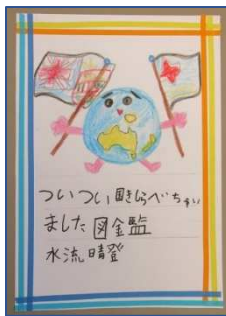 ついつい国きらべちゃい
ました図金監
水流晴登